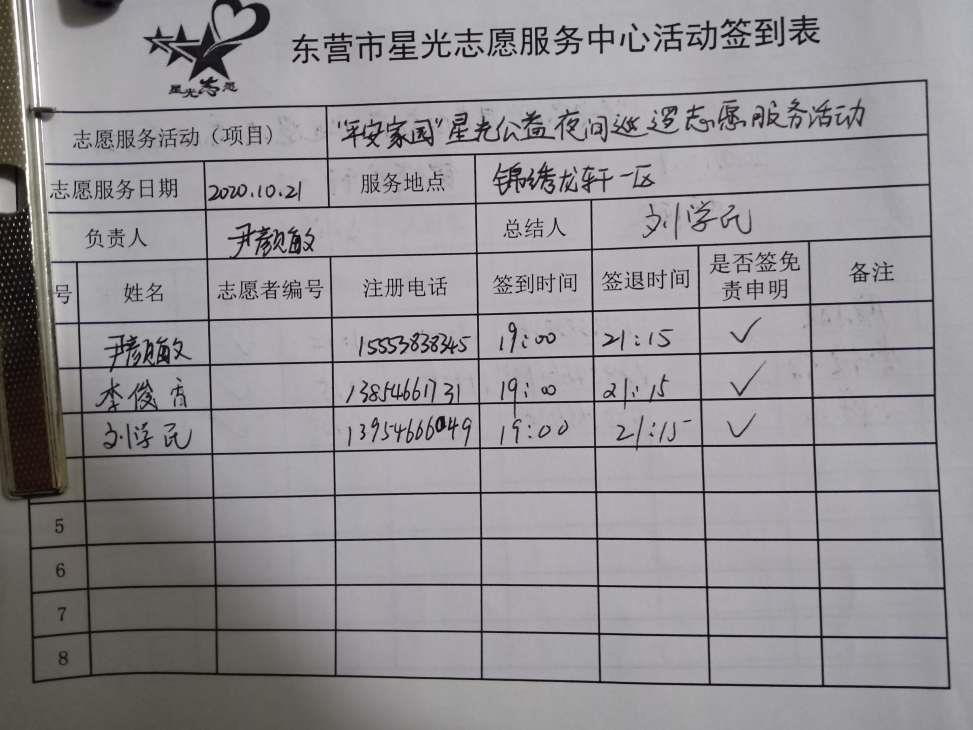 星光志愿
东营市星光志愿服务中心活动签到表
志愿服务活动（项目） "平安家园"星光公益夜间巡逻志愿服务活动
志愿服务日期 2020.10.21 服务地点 锦绣龙轩一区
负责人 尹颜敏 总结人 刘学民
号 姓名 志愿者编号 注册电话 签到时间 签退时间 是否签免责申明 备注
尹颜敏 15553838345 19:00 21:15 ✓
李俊青 13854661731 19:00 21:15 ✓
刘学民 13954666049 19:00 21:15 ✓
5
6
7
8